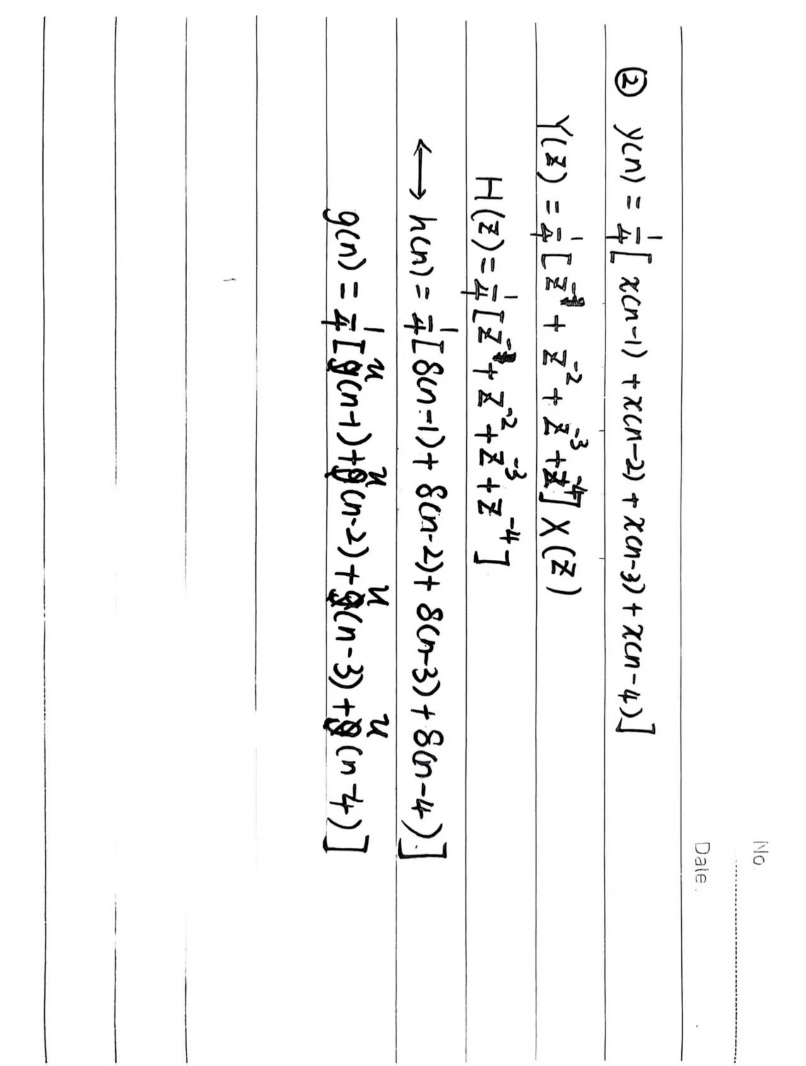 No.
Date.
② y(n) = 1/4 [ x(n-1) + x(n-2) + x(n-3) + x(n-4) ]
Y(z) = 1/4 [ z⁻¹ + z⁻² + z⁻³ + z⁻⁴ ] X(z)
H(z) = 1/4 [ z⁻¹ + z⁻² + z⁻³ + z⁻⁴ ]
⟷ h(n) = 1/4 [ δ(n-1) + δ(n-2) + δ(n-3) + δ(n-4) ]
g(n) = 1/4 [ u(n-1) + u(n-2) + u(n-3) + u(n-4) ]